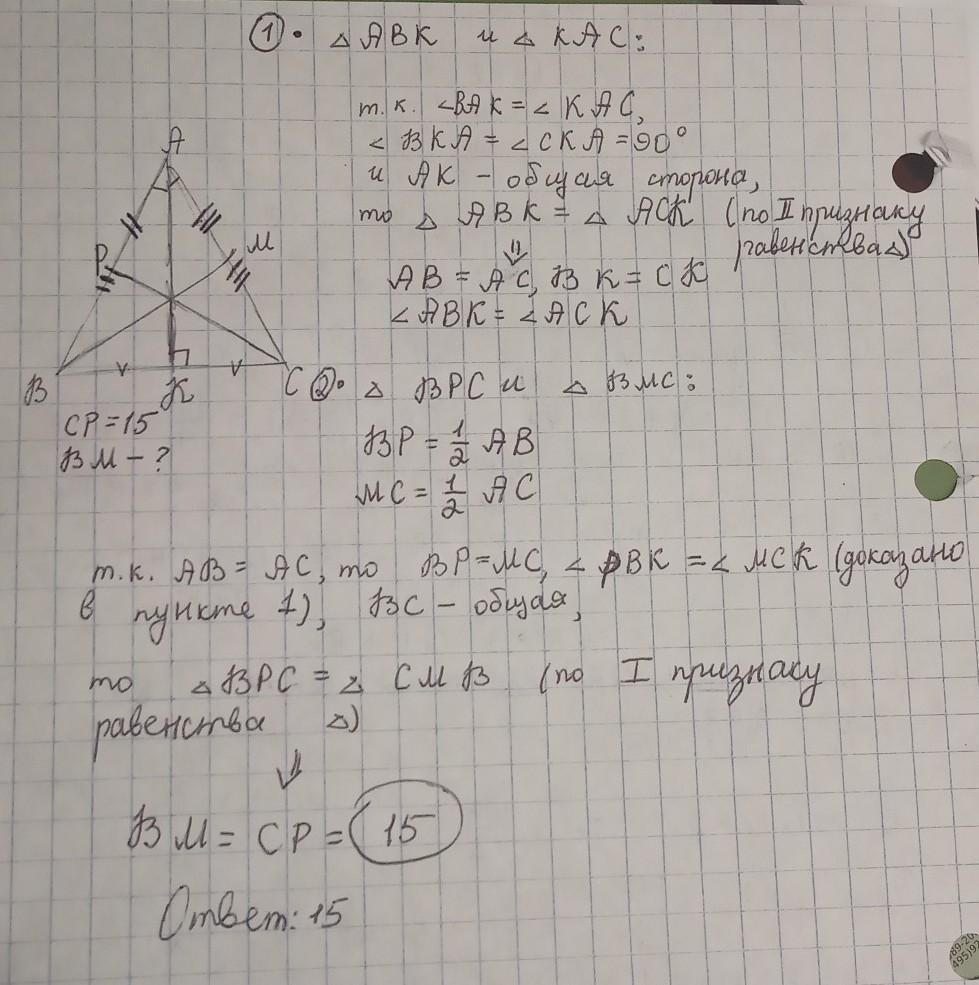 ① • △ ABK и △ KAC:
т.к. ∠BAK = ∠ KAC,
∠ BKA = ∠CKA = 90°
и AK - общая сторона,
то △ ABK = △ ACK (по II признаку
равенства △)
⇓
AB = AC, BK = CK
∠ABK = ∠ACK
A
P
M
B
K
C
CP = 15
BM - ?
②• △ BPC и △ BMC:
BP = 1/2 AB
MC = 1/2 AC
т.к. AB = AC, то BP = MC, ∠ PBK = ∠ MCK (доказано
в пункте 1), BC - общая,
то △ BPC = △ CMB (по I признаку
равенства △)
⇓
BM = CP = 15
Ответ: 15